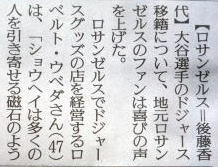 【ロサンゼルス＝後藤香
代】大谷選手のドジャース
移籍について、地元ロサン
ゼルスのファンは喜びの声
を上げた。
ロサンゼルスでドジャー
スグッズの店を経営するロ
ベルト・ウベダさん（47）
は、「ショウヘイは多くの
人を引き寄せる磁石のよう